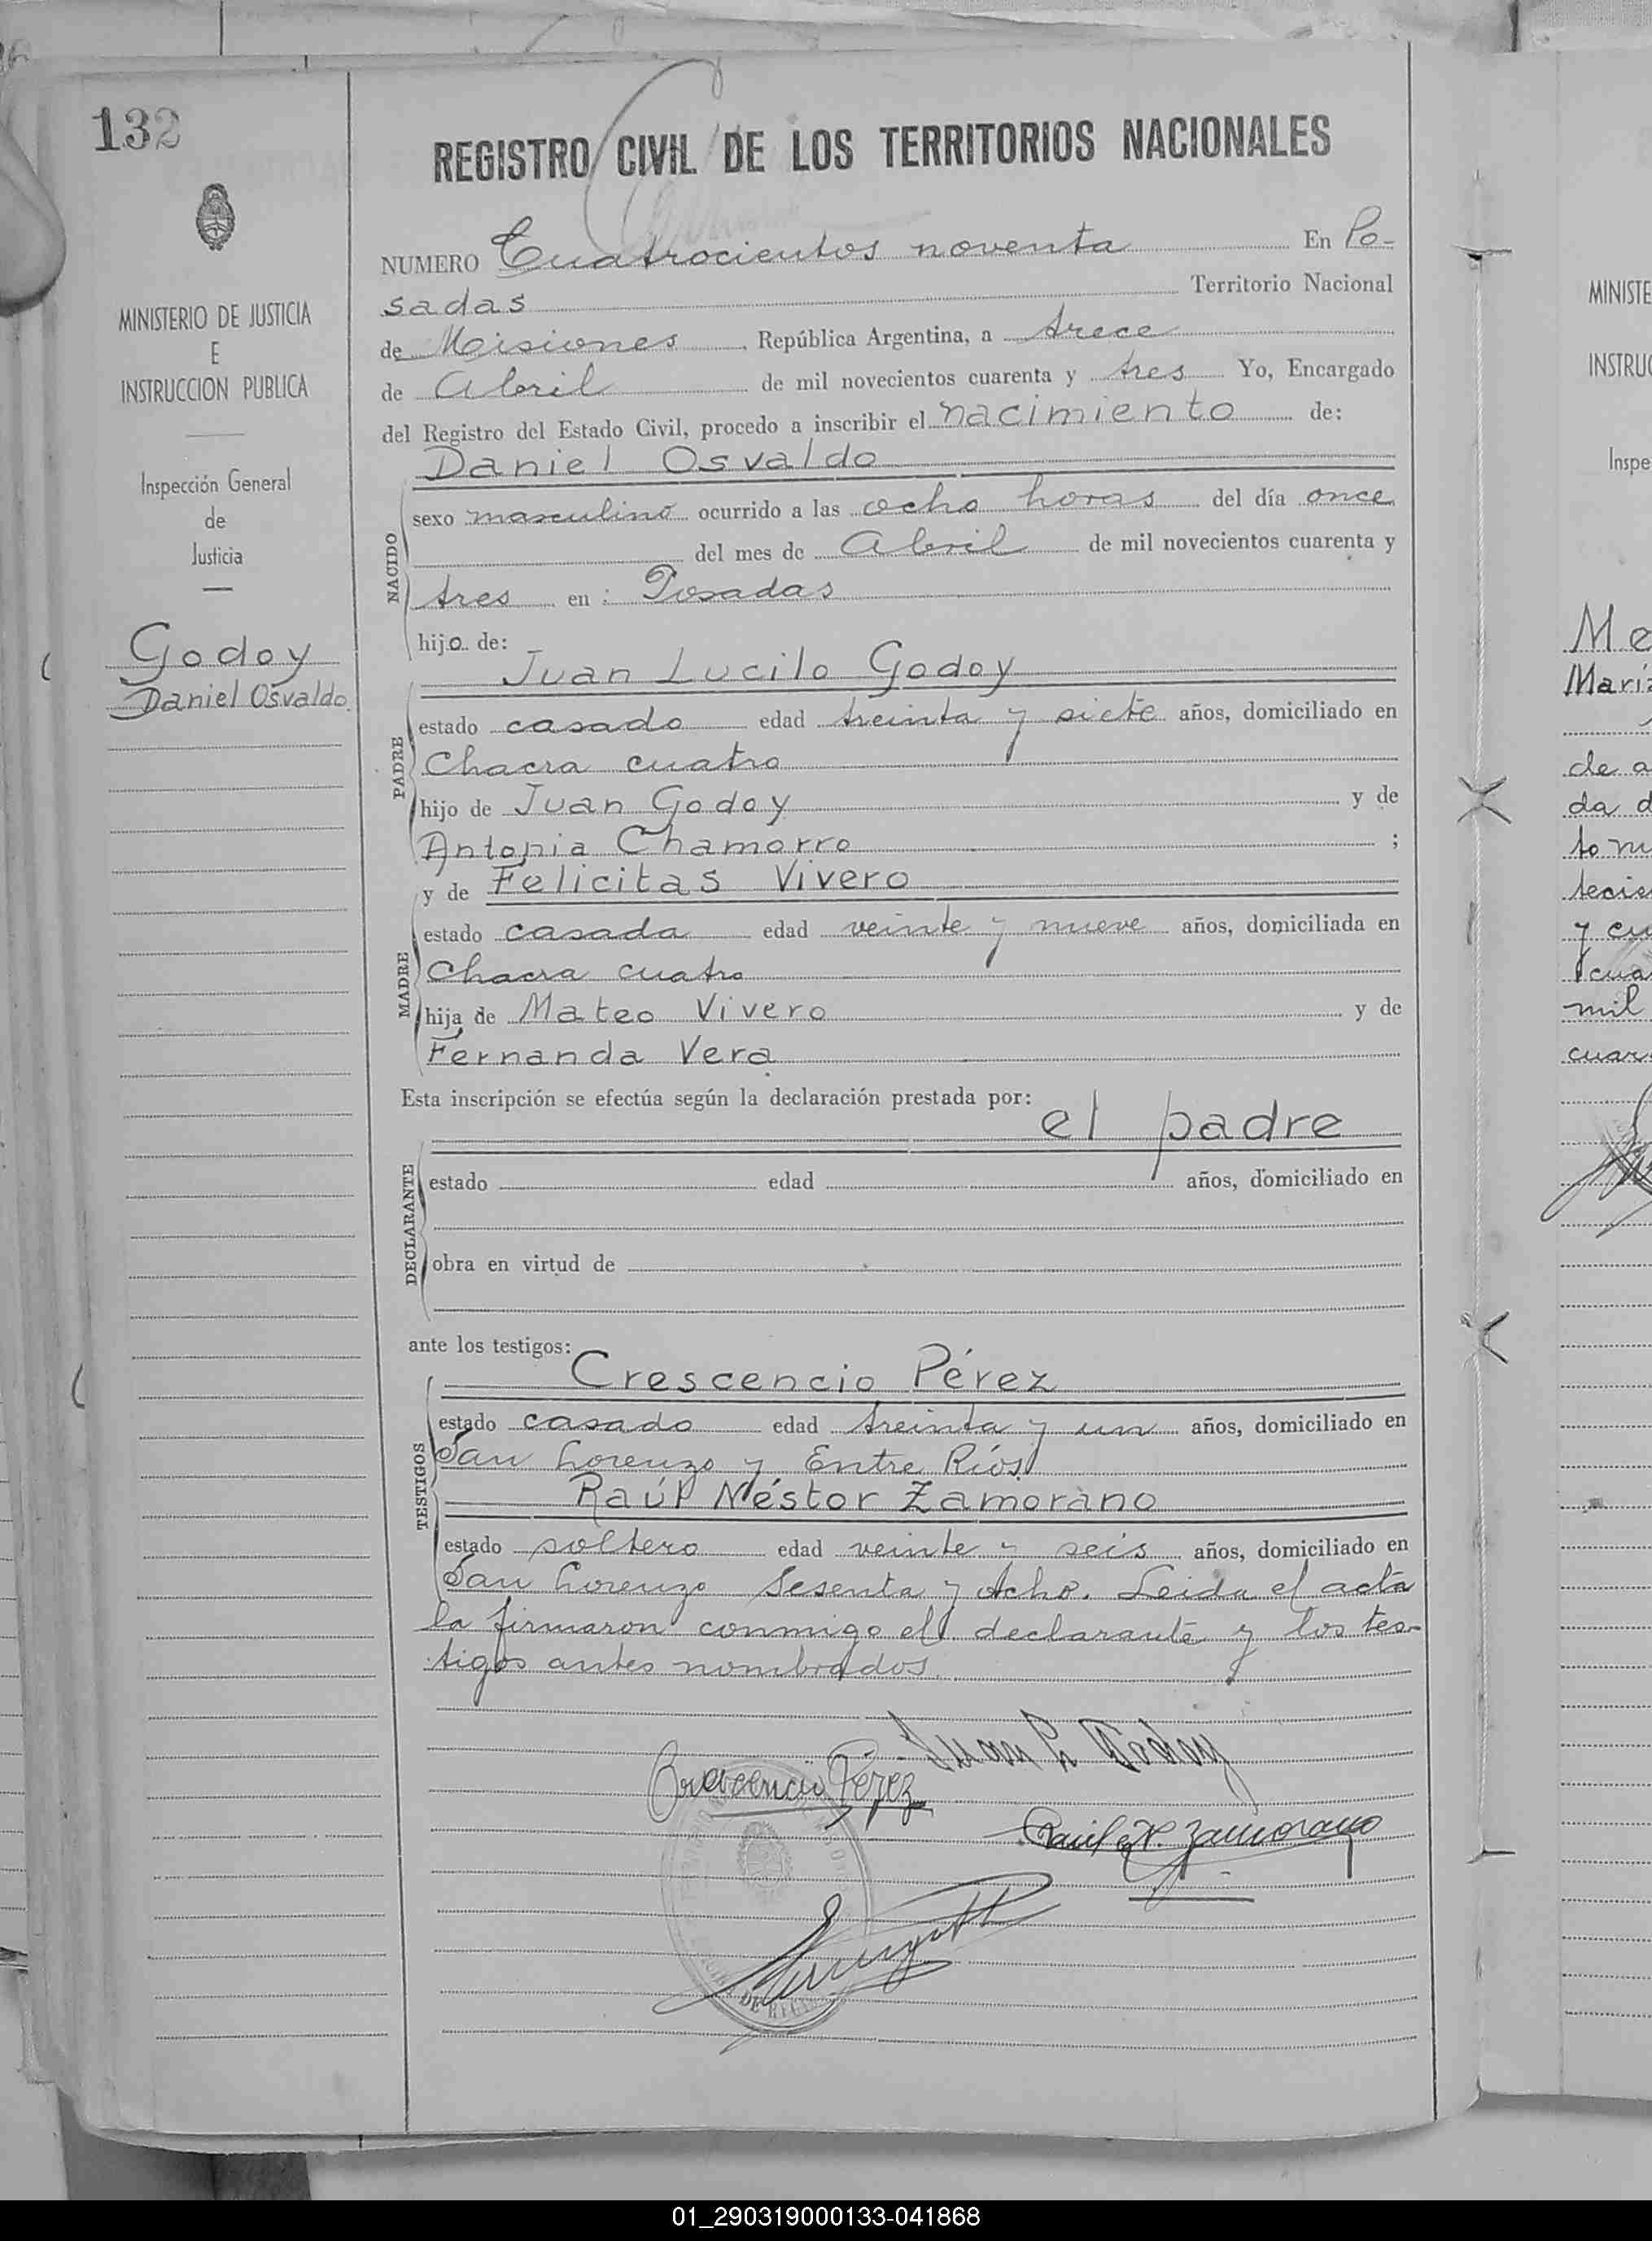 132
REGISTRO CIVIL DE LOS TERRITORIOS NACIONALES
NUMERO Cuatrocientos noventa En Po-
sadas Territorio Nacional
de Misiones, República Argentina, a trece
de Abril de mil novecientos cuarenta y tres Yo, Encargado
del Registro del Estado Civil, procedo a inscribir el nacimiento de:
MINISTERIO DE JUSTICIA
E
INSTRUCCION PUBLICA
Inspección General
de
Justicia
Godoy
Daniel Osvaldo
NACIDO
Daniel Osvaldo
sexo masculino ocurrido a las ocho horas del día once
del mes de Abril de mil novecientos cuarenta y
tres en: Posadas
hijo de:
PADRE
Juan Lucilo Godoy
estado casado edad treinta y siete años, domiciliado en
Chacra cuatro
hijo de Juan Godoy y de
Antonia Chamorro ;
MADRE
y de Felicitas Vivero
estado casada edad veinte y nueve años, domiciliada en
Chacra cuatro
hija de Mateo Vivero y de
Fernanda Vera
Esta inscripción se efectúa según la declaración prestada por:
DECLARANTE
el padre
estado edad años, domiciliado en
obra en virtud de
ante los testigos:
TESTIGOS
Crescencio Pérez
estado casado edad treinta y un años, domiciliado en
San Lorenzo y Entre Ríos
Raúl Néstor Zamorano
estado soltero edad veinte y seis años, domiciliado en
San Lorenzo sesenta y ocho. Leida el acta
la firmaron conmigo el declarante y los tes-
tigos antes nombrados.
Juan L Godoy
Crescencio Pérez
Raúl N. Zamorano
MINISTE
INSTRUC
Inspe
Me
María
de a
da d
to nu
tecie
y cu
cua
mil
cuar
01_290319000133-041868